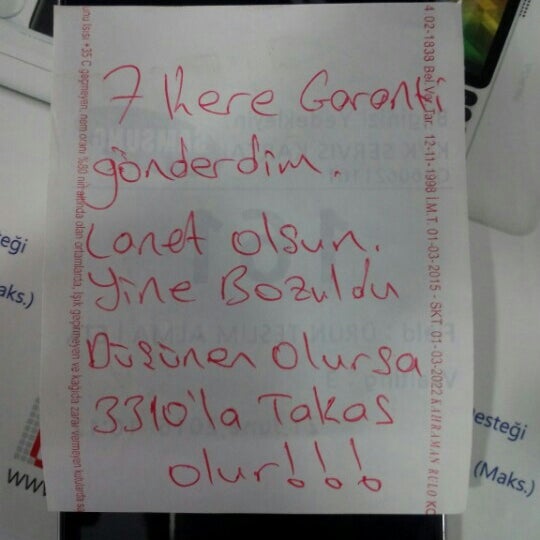 7 Kere Garanti
gönderdim
Lanet olsun.
Yine Bozuldu
Düşünen olursa
3310'la Takas
olur!!!
4 02-1838 Bel.Ver.Tar. 12-11-1998 İ.M.T. 01-03-2015 - SKT. 01-03-2022 KAHRAMAN RULO
ısısı +35 C geçmeyen, nem oranı %80 nin altında olan ortamlarda, Işık geçirmeyen ve kağıda zarar vermeyen kutularda
teği
aks.)
www
esteği
(Maks.)